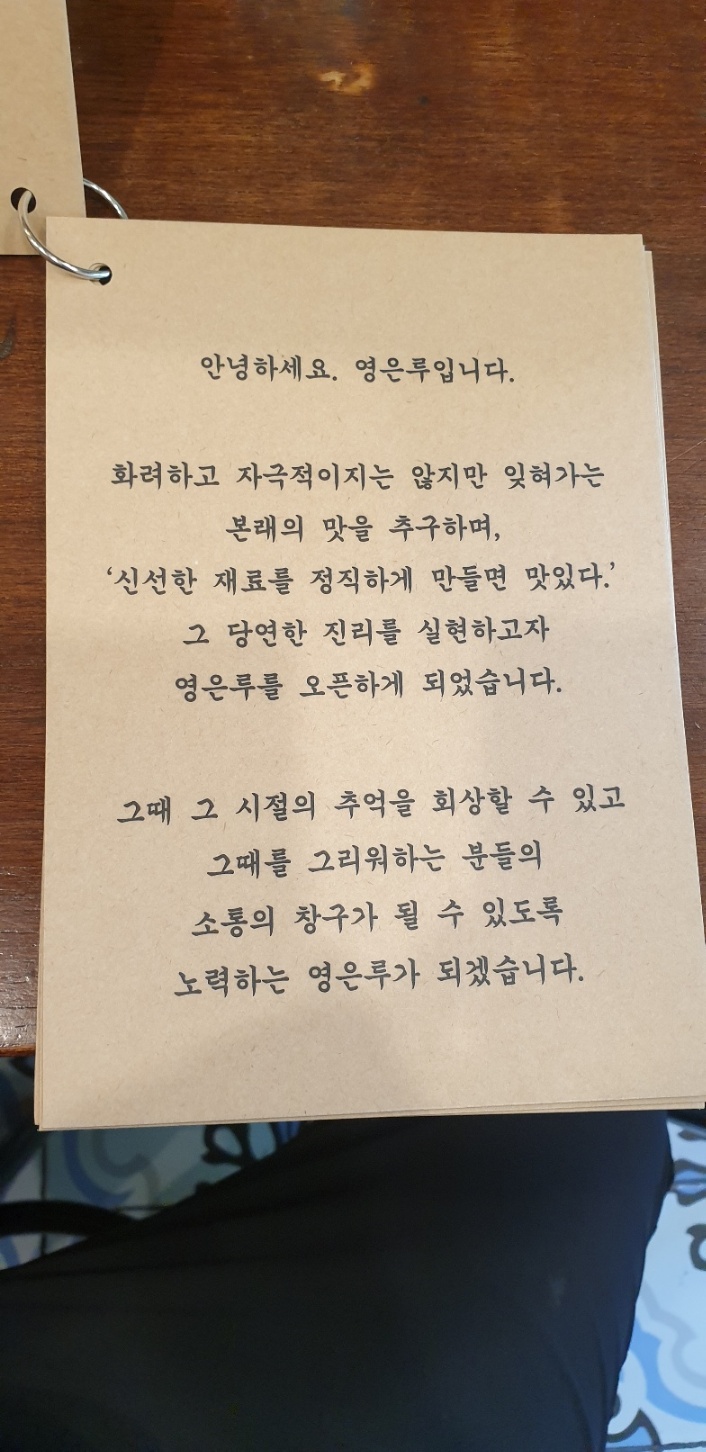 안녕하세요. 영은루입니다.
화려하고 자극적이지는 않지만 잊혀가는
본래의 맛을 추구하며,
‘신선한 재료를 정직하게 만들면 맛있다.’
그 당연한 진리를 실현하고자
영은루를 오픈하게 되었습니다.
그때 그 시절의 추억을 회상할 수 있고
그때를 그리워하는 분들의
소통의 창구가 될 수 있도록
노력하는 영은루가 되겠습니다.